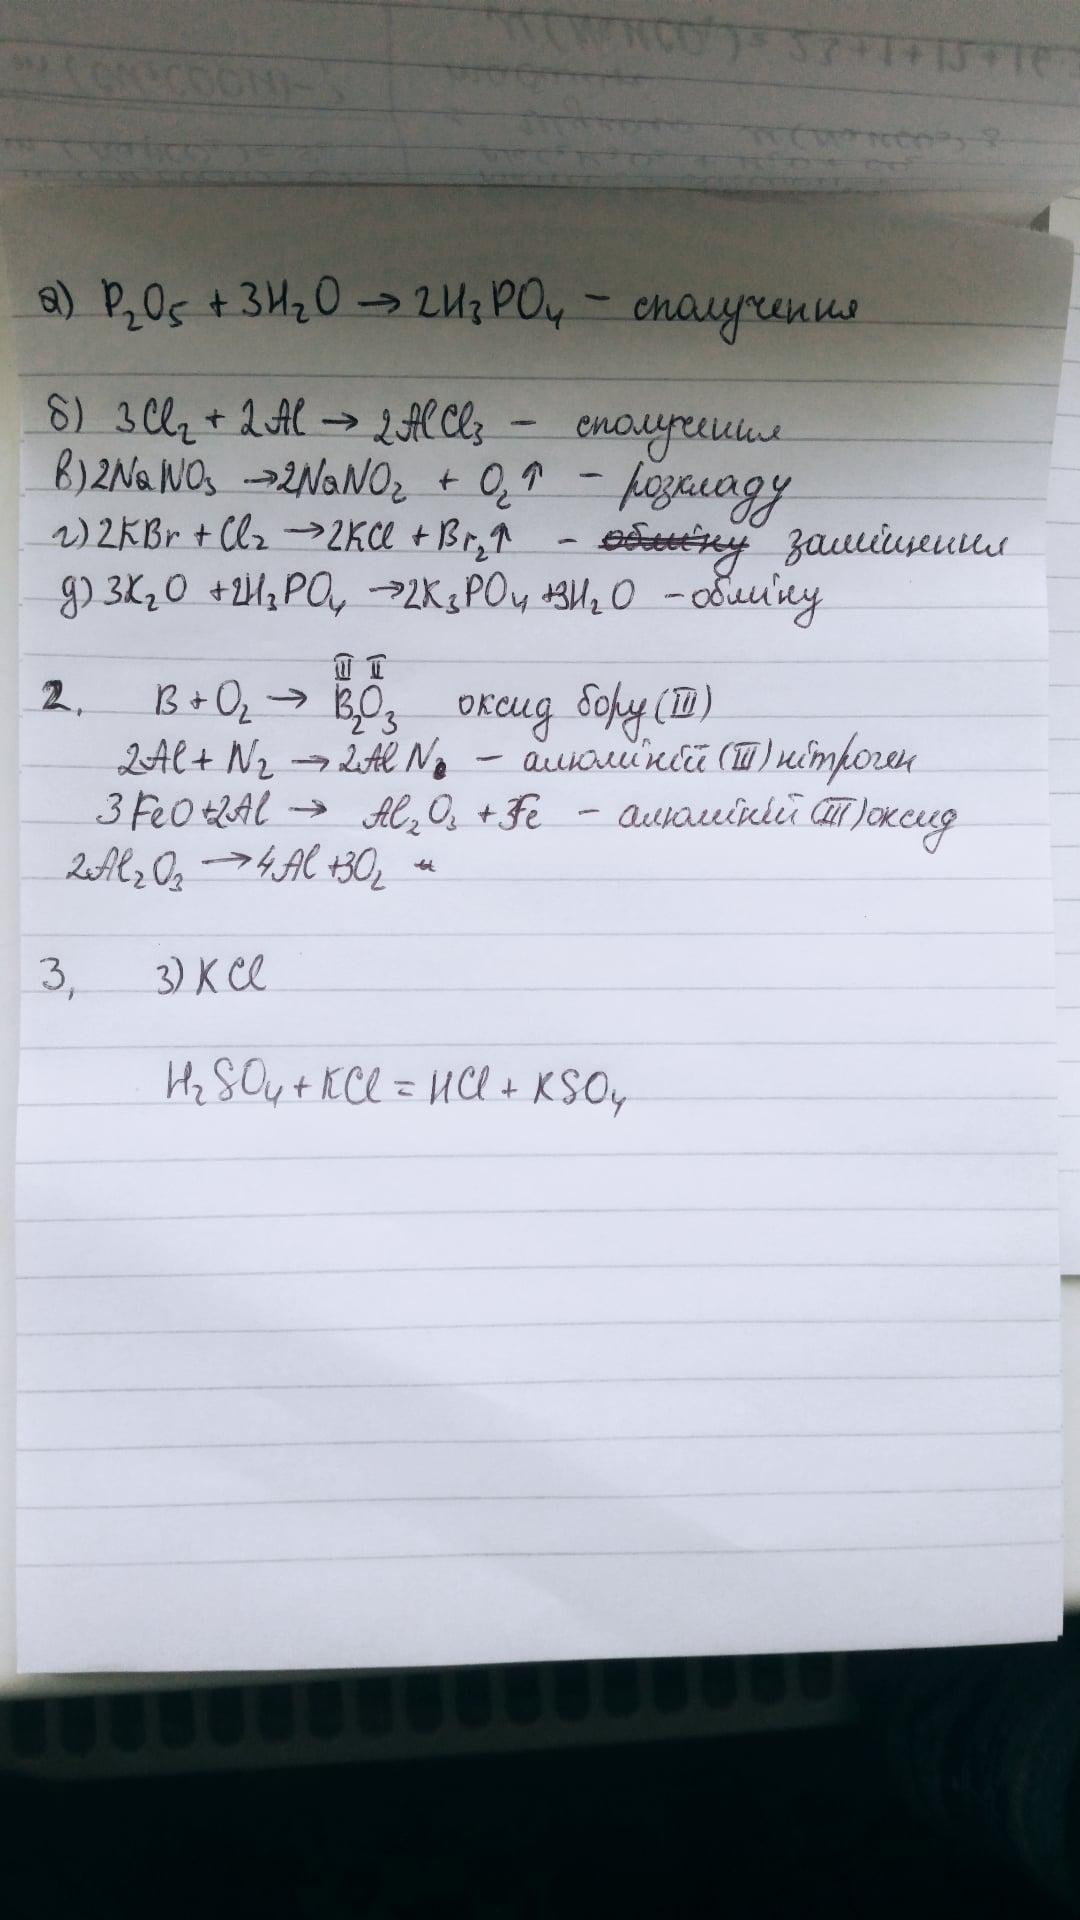 а) P₂O₅ + 3H₂O → 2H₃PO₄ – сполучення
б) 3Cl₂ + 2Al → 2AlCl₃ – сполучення
в) 2NaNO₃ → 2NaNO₂ + O₂↑ – розкладу
г) 2KBr + Cl₂ → 2KCl + Br₂↑ – обміну заміщення
д) 3K₂O + 2H₃PO₄ → 2K₃PO₄ + 3H₂O – обміну
III II
2, B + O₂ → B₂O₃ оксид бору (III)
2Al + N₂ → 2AlN – алюміній (III) нітроген
3FeO + 2Al → Al₂O₃ + 3Fe – алюміній (III) оксид
2Al₂O₃ → 4Al + 3O₂
3, 3) KCl
H₂SO₄ + KCl = HCl + KSO₄